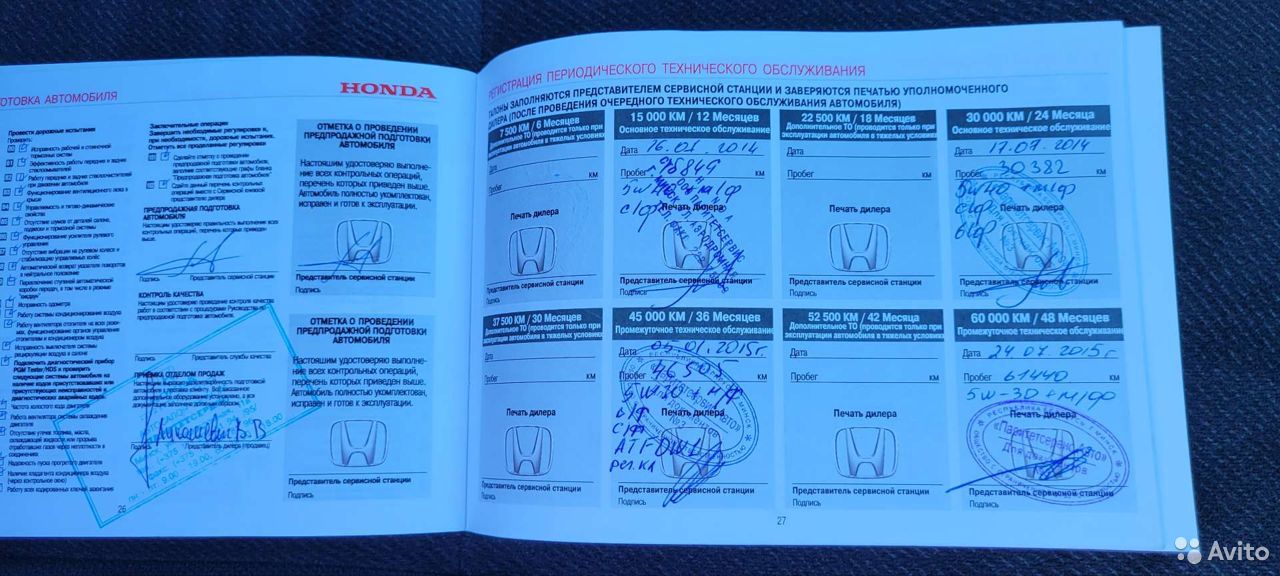 ГОТОВКА АВТОМОБИЛЯ
HONDA
Провести дорожные испытания
Проверить:
Исправность рабочей и стояночной
тормозных систем
Эффективность работы передних и задних
стеклоомывателей
Работу передних и задних стеклоочистителей
при движении автомобиля
Функционирование вентиляционного люка в
крыше
Управляемость и тягово-динамические
свойства
Отсутствие шумов от деталей салона,
подвески и тормозной системы
Функционирование усилителя рулевого
управления
Отсутствие вибрации на рулевом колесе и
стабилизацию управляемых колёс
Автоматический возврат указателя поворотов
в нейтральное положение
Переключение ступеней автоматической
коробки передач, в том числе в режиме
"кикдаун"
Исправность одометра
Работу системы кондиционирования воздуха
Работу вентилятора отопителя на всех режи-
мах, функционирование органов управления
отопителем и кондиционером воздуха
Исправность выключателя системы
рециркуляции воздуха в салоне
Подключить диагностический прибор
PGM Tester/HDS и проверить
следующие системы автомобиля на
наличие кодов присутствовавших или
присутствующих неисправностей и
диагностических аварийных кодов.
Частота холостого хода двигателя
Работа вентилятора системы охлаждения
двигателя
Отсутствие утечек топлива, масла,
охлаждающей жидкости или прорыва
отработавших газов через неплотности в
соединениях
Надежность пуска прогретого двигателя
Наличие хладагента кондиционера воздуха
(через контрольное окно)
Работу всех кодированных ключей зажигания
Заключительные операции
Завершить необходимые регулировки и,
при необходимости, дорожные испытания.
Отметить все проделанные регулировки
Сделайте отметку о проведении
предпродажной подготовки автомобиля,
заполнив соответствующие графы бланка
"Предпродажная подготовка автомобиля"
Сдайте данный перечень контрольных
операций вместе с Сервисной книжкой
представителю дилера
ПРЕДПРОДАЖНАЯ ПОДГОТОВКА
АВТОМОБИЛЯ
Настоящим удостоверяю правильность выполнения всех
контрольных операций, перечень которых приведен
выше.
Подпись Представитель сервисной станции
КОНТРОЛЬ КАЧЕСТВА
Настоящим удостоверяю проведение контроля качества
работ в соответствии с процедурами Руководства по
предпродажной подготовке автомобиля.
Подпись Представитель службы качества
ПРИЕМКА ОТДЕЛОМ ПРОДАЖ
Подпись Представитель дилера (продавец)
26
ОТМЕТКА О ПРОВЕДЕНИИ
ПРЕДПРОДАЖНОЙ ПОДГОТОВКИ
АВТОМОБИЛЯ
Настоящим удостоверяю выполне-
ние всех контрольных операций,
перечень которых приведен выше.
Автомобиль полностью укомплектован,
исправен и готов к эксплуатации.
Представитель сервисной станции
Подпись
ОТМЕТКА О ПРОВЕДЕНИИ
ПРЕДПРОДАЖНОЙ ПОДГОТОВКИ
АВТОМОБИЛЯ
Настоящим удостоверяю выполне-
ние всех контрольных операций,
перечень которых приведен выше.
Автомобиль полностью укомплектован,
исправен и готов к эксплуатации.
Представитель сервисной станции
Подпись
РЕГИСТРАЦИЯ ПЕРИОДИЧЕСКОГО ТЕХНИЧЕСКОГО ОБСЛУЖИВАНИЯ
ТАЛОНЫ ЗАПОЛНЯЮТСЯ ПРЕДСТАВИТЕЛЕМ СЕРВИСНОЙ СТАНЦИИ И ЗАВЕРЯЮТСЯ ПЕЧАТЬЮ УПОЛНОМОЧЕННОГО
ДИЛЕРА (ПОСЛЕ ПРОВЕДЕНИЯ ОЧЕРЕДНОГО ТЕХНИЧЕСКОГО ОБСЛУЖИВАНИЯ АВТОМОБИЛЯ)
7 500 КМ / 6 Месяцев
Дополнительное ТО (проводится только при
эксплуатации автомобиля в тяжелых условиях)
Дата
Пробег км
Печать дилера
Представитель сервисной станции
Подпись
15 000 КМ / 12 Месяцев
Основное техническое обслуживание
Дата 16.01.2014
Пробег км
5w40 + м/ф
с/ф
Печать дилера
Представитель сервисной станции
Подпись
22 500 КМ / 18 Месяцев
Дополнительное ТО (проводится только при
эксплуатации автомобиля в тяжелых условиях)
Дата
Пробег км
Печать дилера
Представитель сервисной станции
Подпись
30 000 КМ / 24 Месяца
Основное техническое обслуживание
Дата 17.07.2014
Пробег 30382 км
5w40 + м/ф
с/ф
в/ф
Печать дилера
Представитель сервисной станции
Подпись
37 500 КМ / 30 Месяцев
Дополнительное ТО (проводится только при
эксплуатации автомобиля в тяжелых условиях)
Дата
Пробег км
Печать дилера
Представитель сервисной станции
Подпись
45 000 КМ / 36 Месяцев
Промежуточное техническое обслуживание
Дата 05.01.2015г.
Пробег 46505 км
5w-30 + м/ф
с/ф
ATF DW1
Печать дилера
Представитель сервисной станции
Подпись
52 500 КМ / 42 Месяца
Дополнительное ТО (проводится только при
эксплуатации автомобиля в тяжелых условиях)
Дата
Пробег км
Печать дилера
Представитель сервисной станции
Подпись
60 000 КМ / 48 Месяцев
Промежуточное техническое обслуживание
Дата 24.07.2015г.
Пробег 61440 км
5w-30 + м/ф
«Паритетсервис Авто»
Печать дилера
Представитель сервисной станции
Подпись
27
Avito